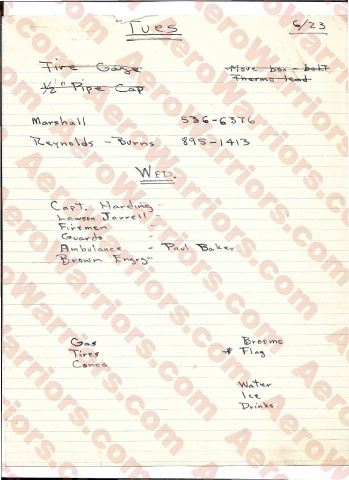 Tues 6/23
Fire Gaze Move box - bolt
1/2" Pipe Cap Thermo lead
Marshall 536-6376
Reynolds - Burns 895-1413
WED.
Capt. Harding -
Lawson Jarrell -
Firemen -
Guards -
Ambulance - Paul Baker
Brown Engrg -
Gas Brooms
Tires * Flag
Cones
Water
Ice
Drinks
AeroWarriors.com